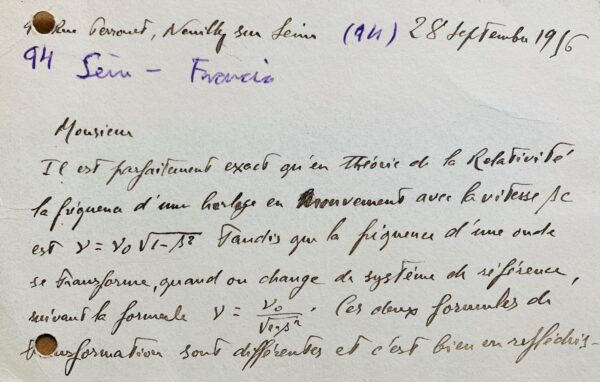 Rue Perronet, Neuilly sur Seine (94) 28 Septembre 1956
94 Sein - Francia
Monsieur
Il est parfaitement exact qu'en théorie de la Relativité
la fréquence d'une horloge en mouvement avec la vitesse βc
est ν = ν₀ √1-β² Tandis que la fréquence d'une onde
se transforme, quand on change de système de référence,
suivant la formule ν = ν₀/√1-β². Ces deux formules de
transformation sont différentes et c'est bien en réfléchis-